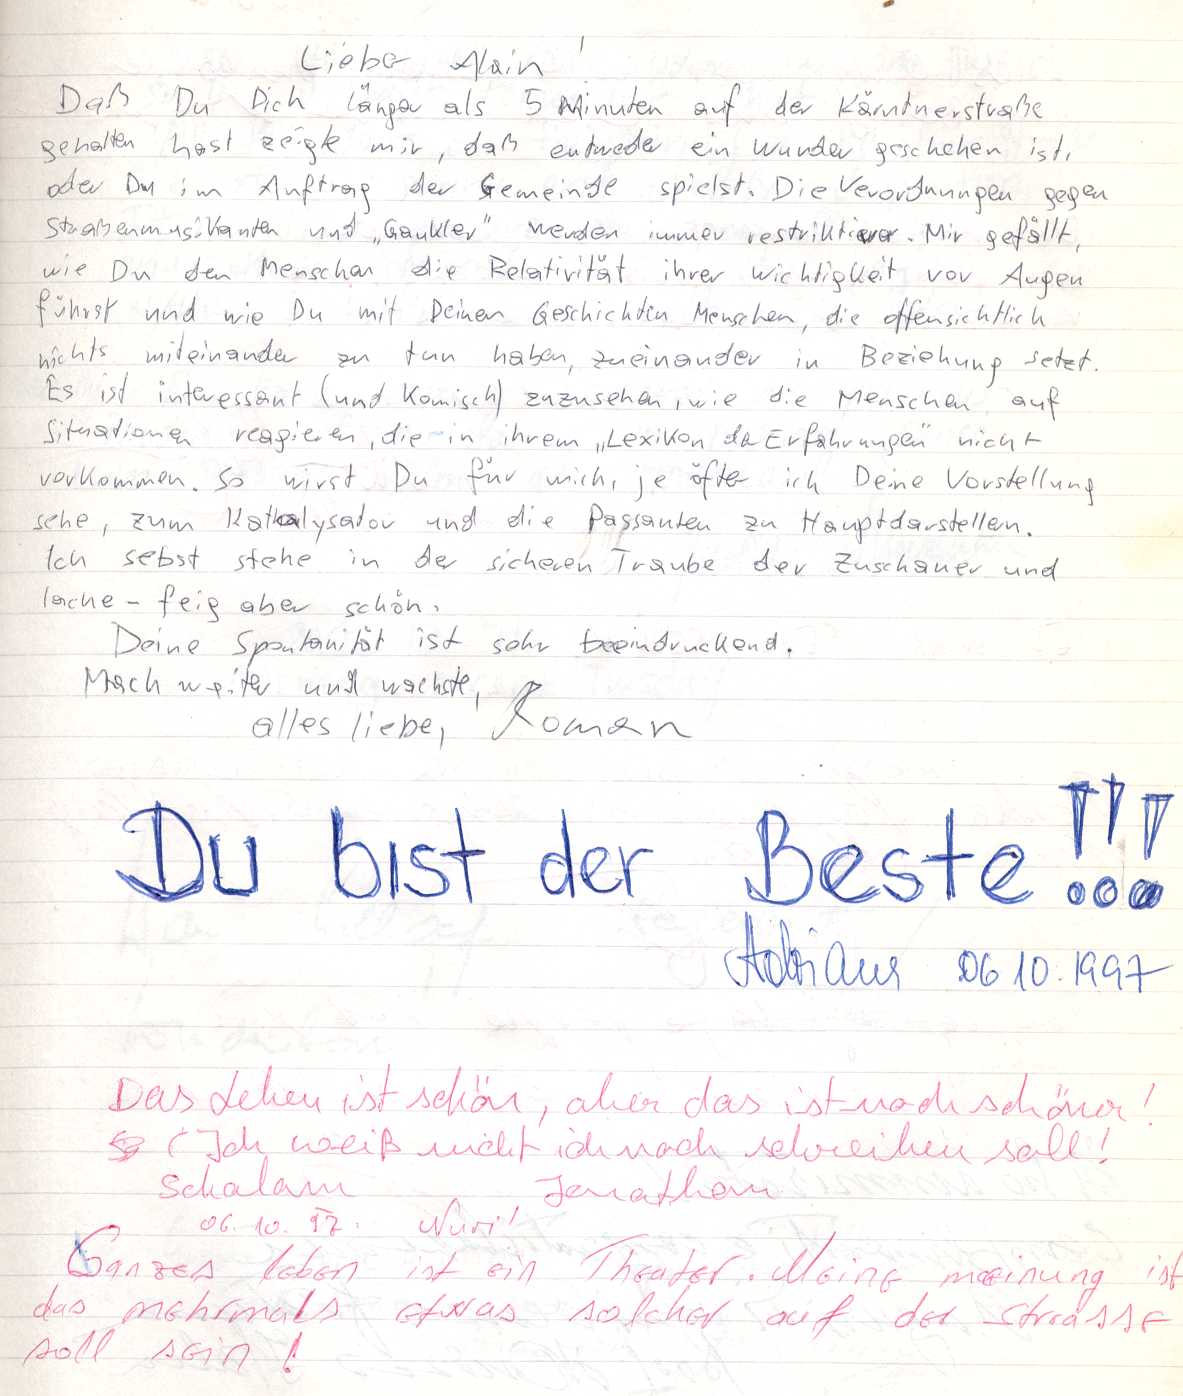 Lieber Alain!
Daß Du Dich länger als 5 Minuten auf der Kärntnerstraße
gehalten hast zeigte mir, daß entweder ein Wunder geschehen ist,
oder Du im Auftrag der Gemeinde spielst. Die Verordnungen gegen
Straßenmusikanten und „Gaukler" werden immer restriktiver. Mir gefällt,
wie Du den Menschen die Relativität ihrer Wichtigkeit vor Augen
führst und wie Du mit Deinen Geschichten Menschen, die offensichtlich
nichts miteinander zu tun haben, zueinander in Beziehung setzt.
Es ist interessant (und Komisch) zuzusehen, wie die Menschen auf
Situationen reagieren, die in ihrem „Lexikon der Erfahrungen" nicht
vorkommen. So wirst Du für mich, je öfter ich Deine Vorstellung
sehe, zum Katalysator und die Passanten zu Hauptdarstellern.
Ich selbst stehe in der sicheren Traube der Zuschauer und
lache - feig aber schön.
Deine Spontanität ist sehr beeindruckend.
Mach weiter und wachse,
alles liebe, Roman
Du bist der Beste!!!
06 10. 1997
Das Leben ist schön, aber das ist noch schöner!
(Ich weiß nicht ich noch schreiben soll!
Schalam Jonathan
06. 10. 97. Nuri!
Ganzes leben ist ein Theater. Meine meinung ist
das mehrmals etwas solcher auf der strasse
soll sein!